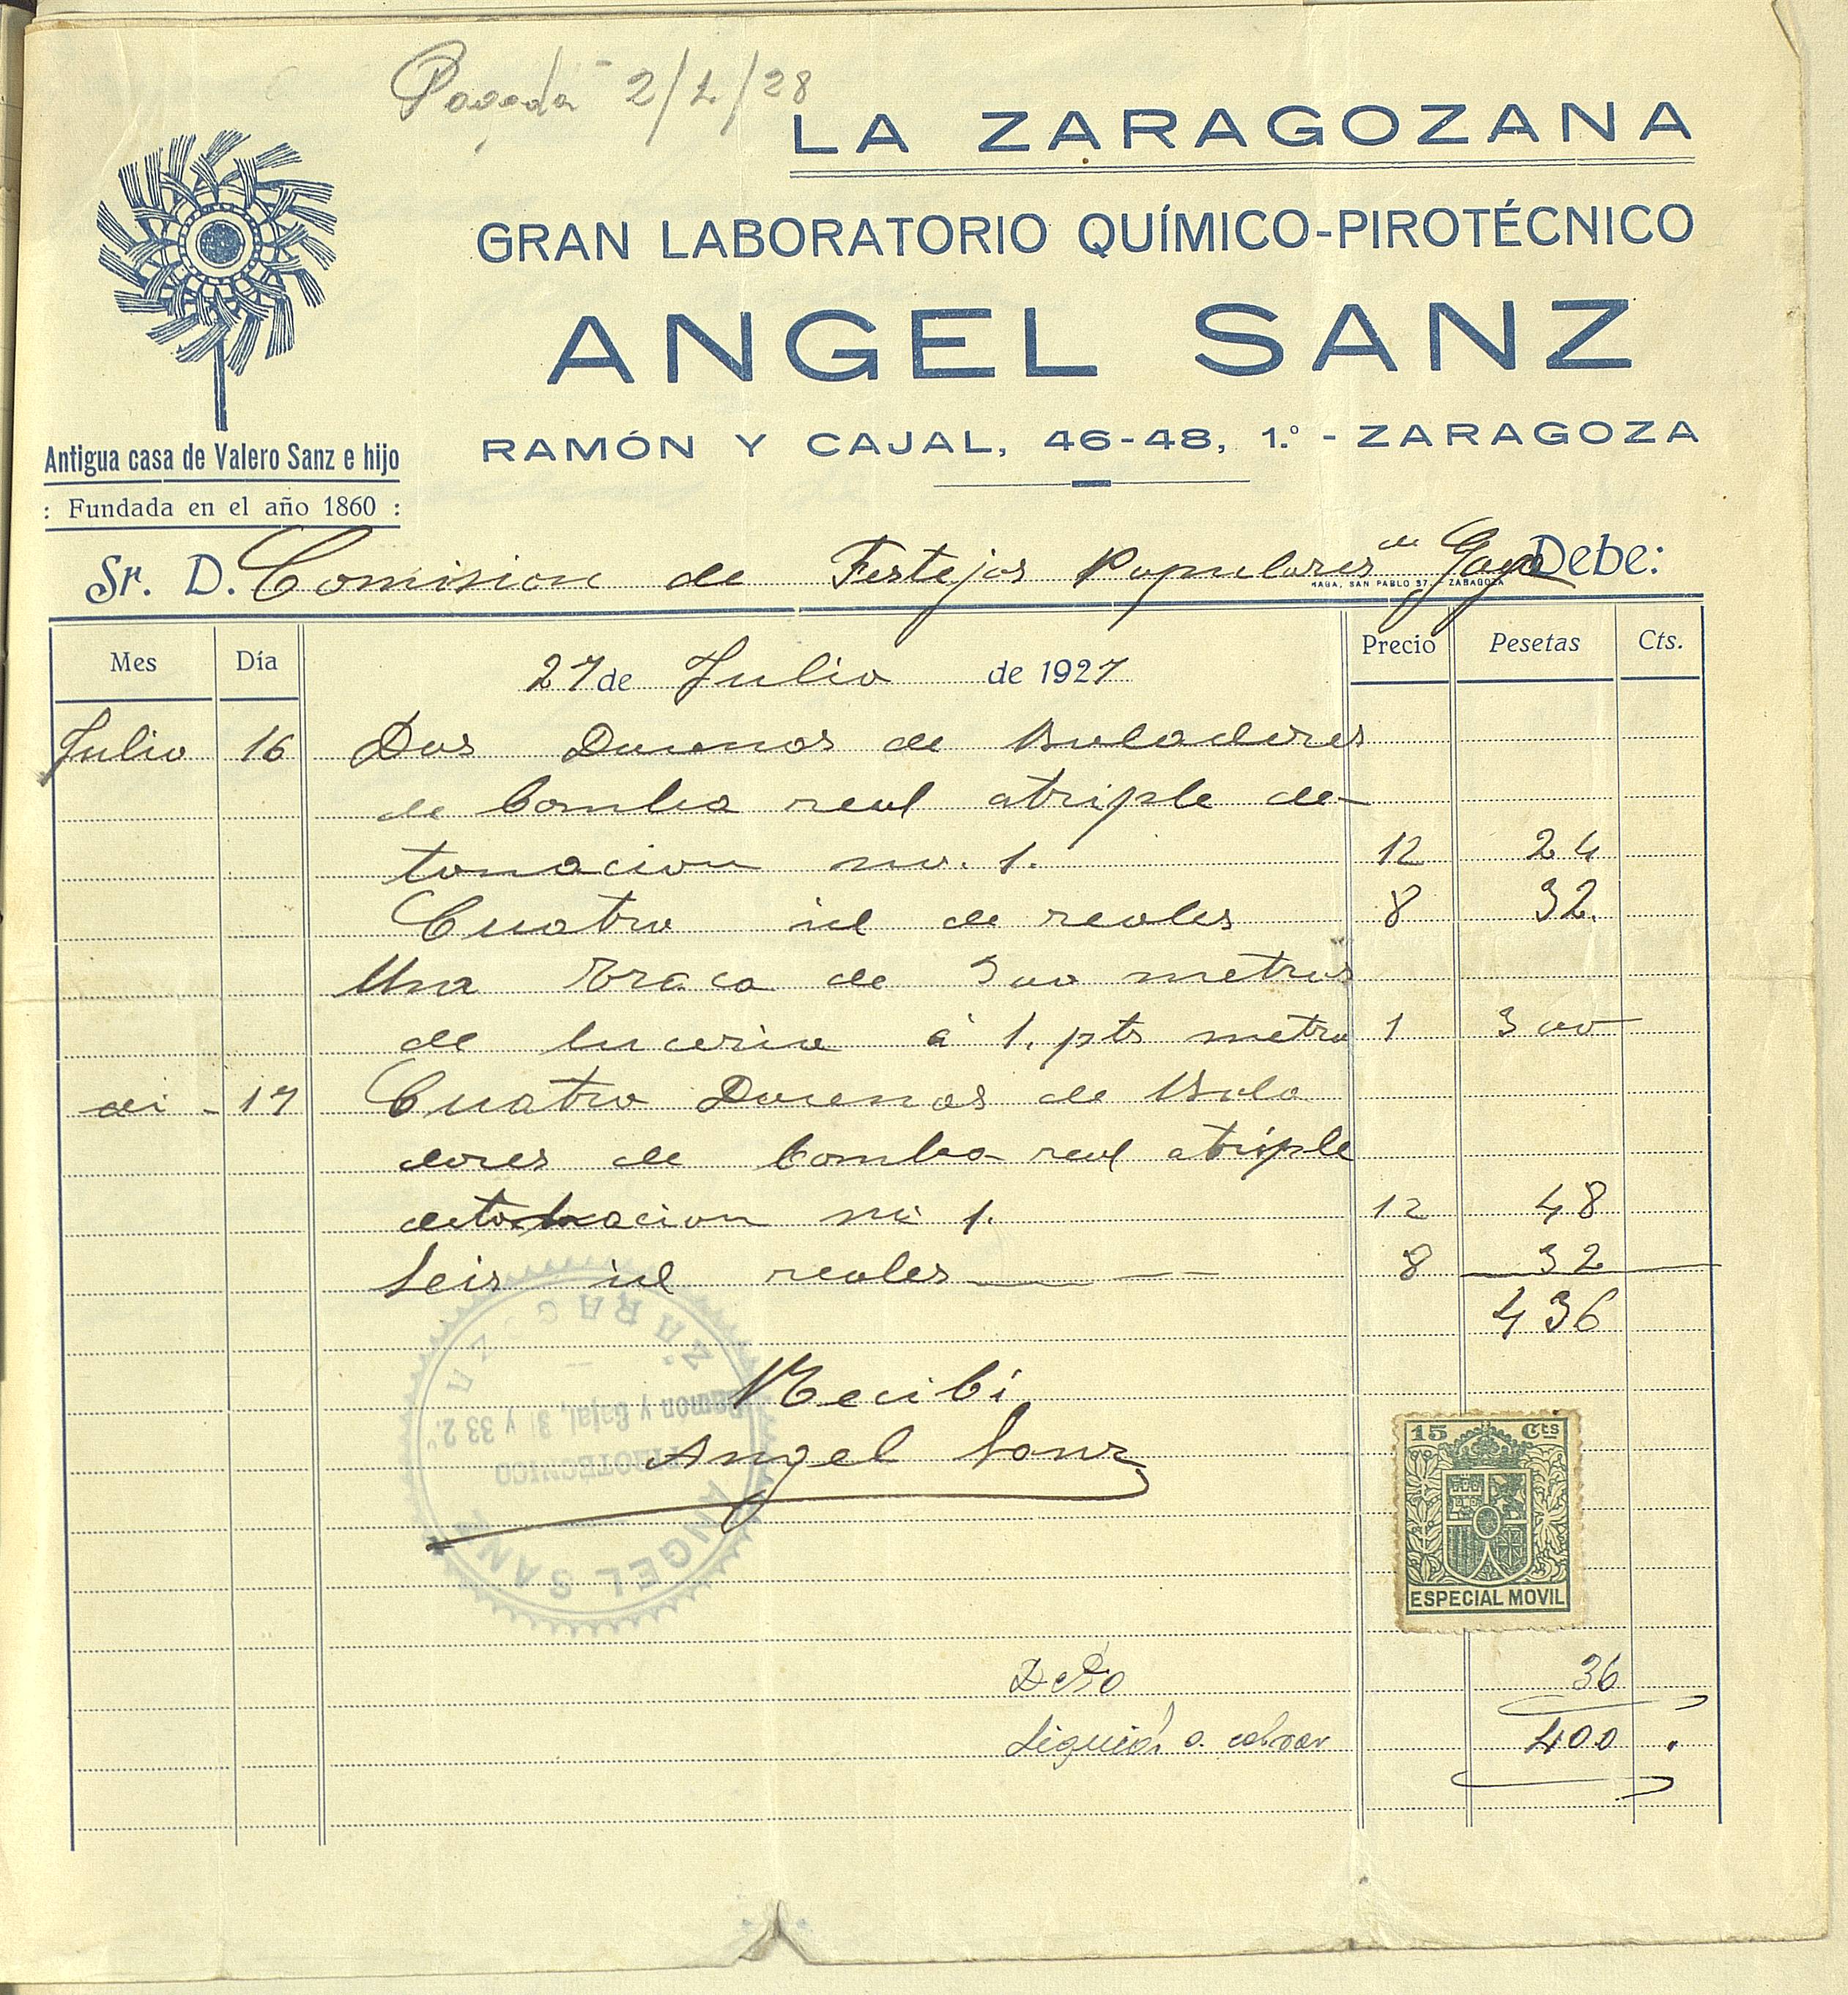 Pagada 2/1/28
LA ZARAGOZANA
GRAN LABORATORIO QUÍMICO-PIROTÉCNICO
ANGEL SANZ
RAMÓN Y CAJAL, 46-48, 1.º - ZARAGOZA
Antigua casa de Valero Sanz e hijo
: Fundada en el año 1860 :
Sr. D. Comision de Festejos Populares de Debe:
SAN PABLO 37. - ZARAGOZA
Mes Día 27 de Julio de 1927 Precio Pesetas Cts.
Julio 16 Dos Docenas de Boladores
de bomba real atriple de-
tonacion no. 1. 12 24
Cuatro id de reales 8 32.
Una Traca de 300 metros
de lucerio á 1. pts metro 1 300
id - 17 Cuatro Docenas de Bola
dores de bomba real atriple
detonacion no 1. 12 48
Seis id reales 8 32
436
Recibi
Angel Sanz
ZARAGOZA
Ramón y Cajal, 31 y 33 2.º
PIROTECNICO
ANGEL SANZ
15 Cts
ESPECIAL MOVIL
Dcto 36
Liquido a cobrar 400 .